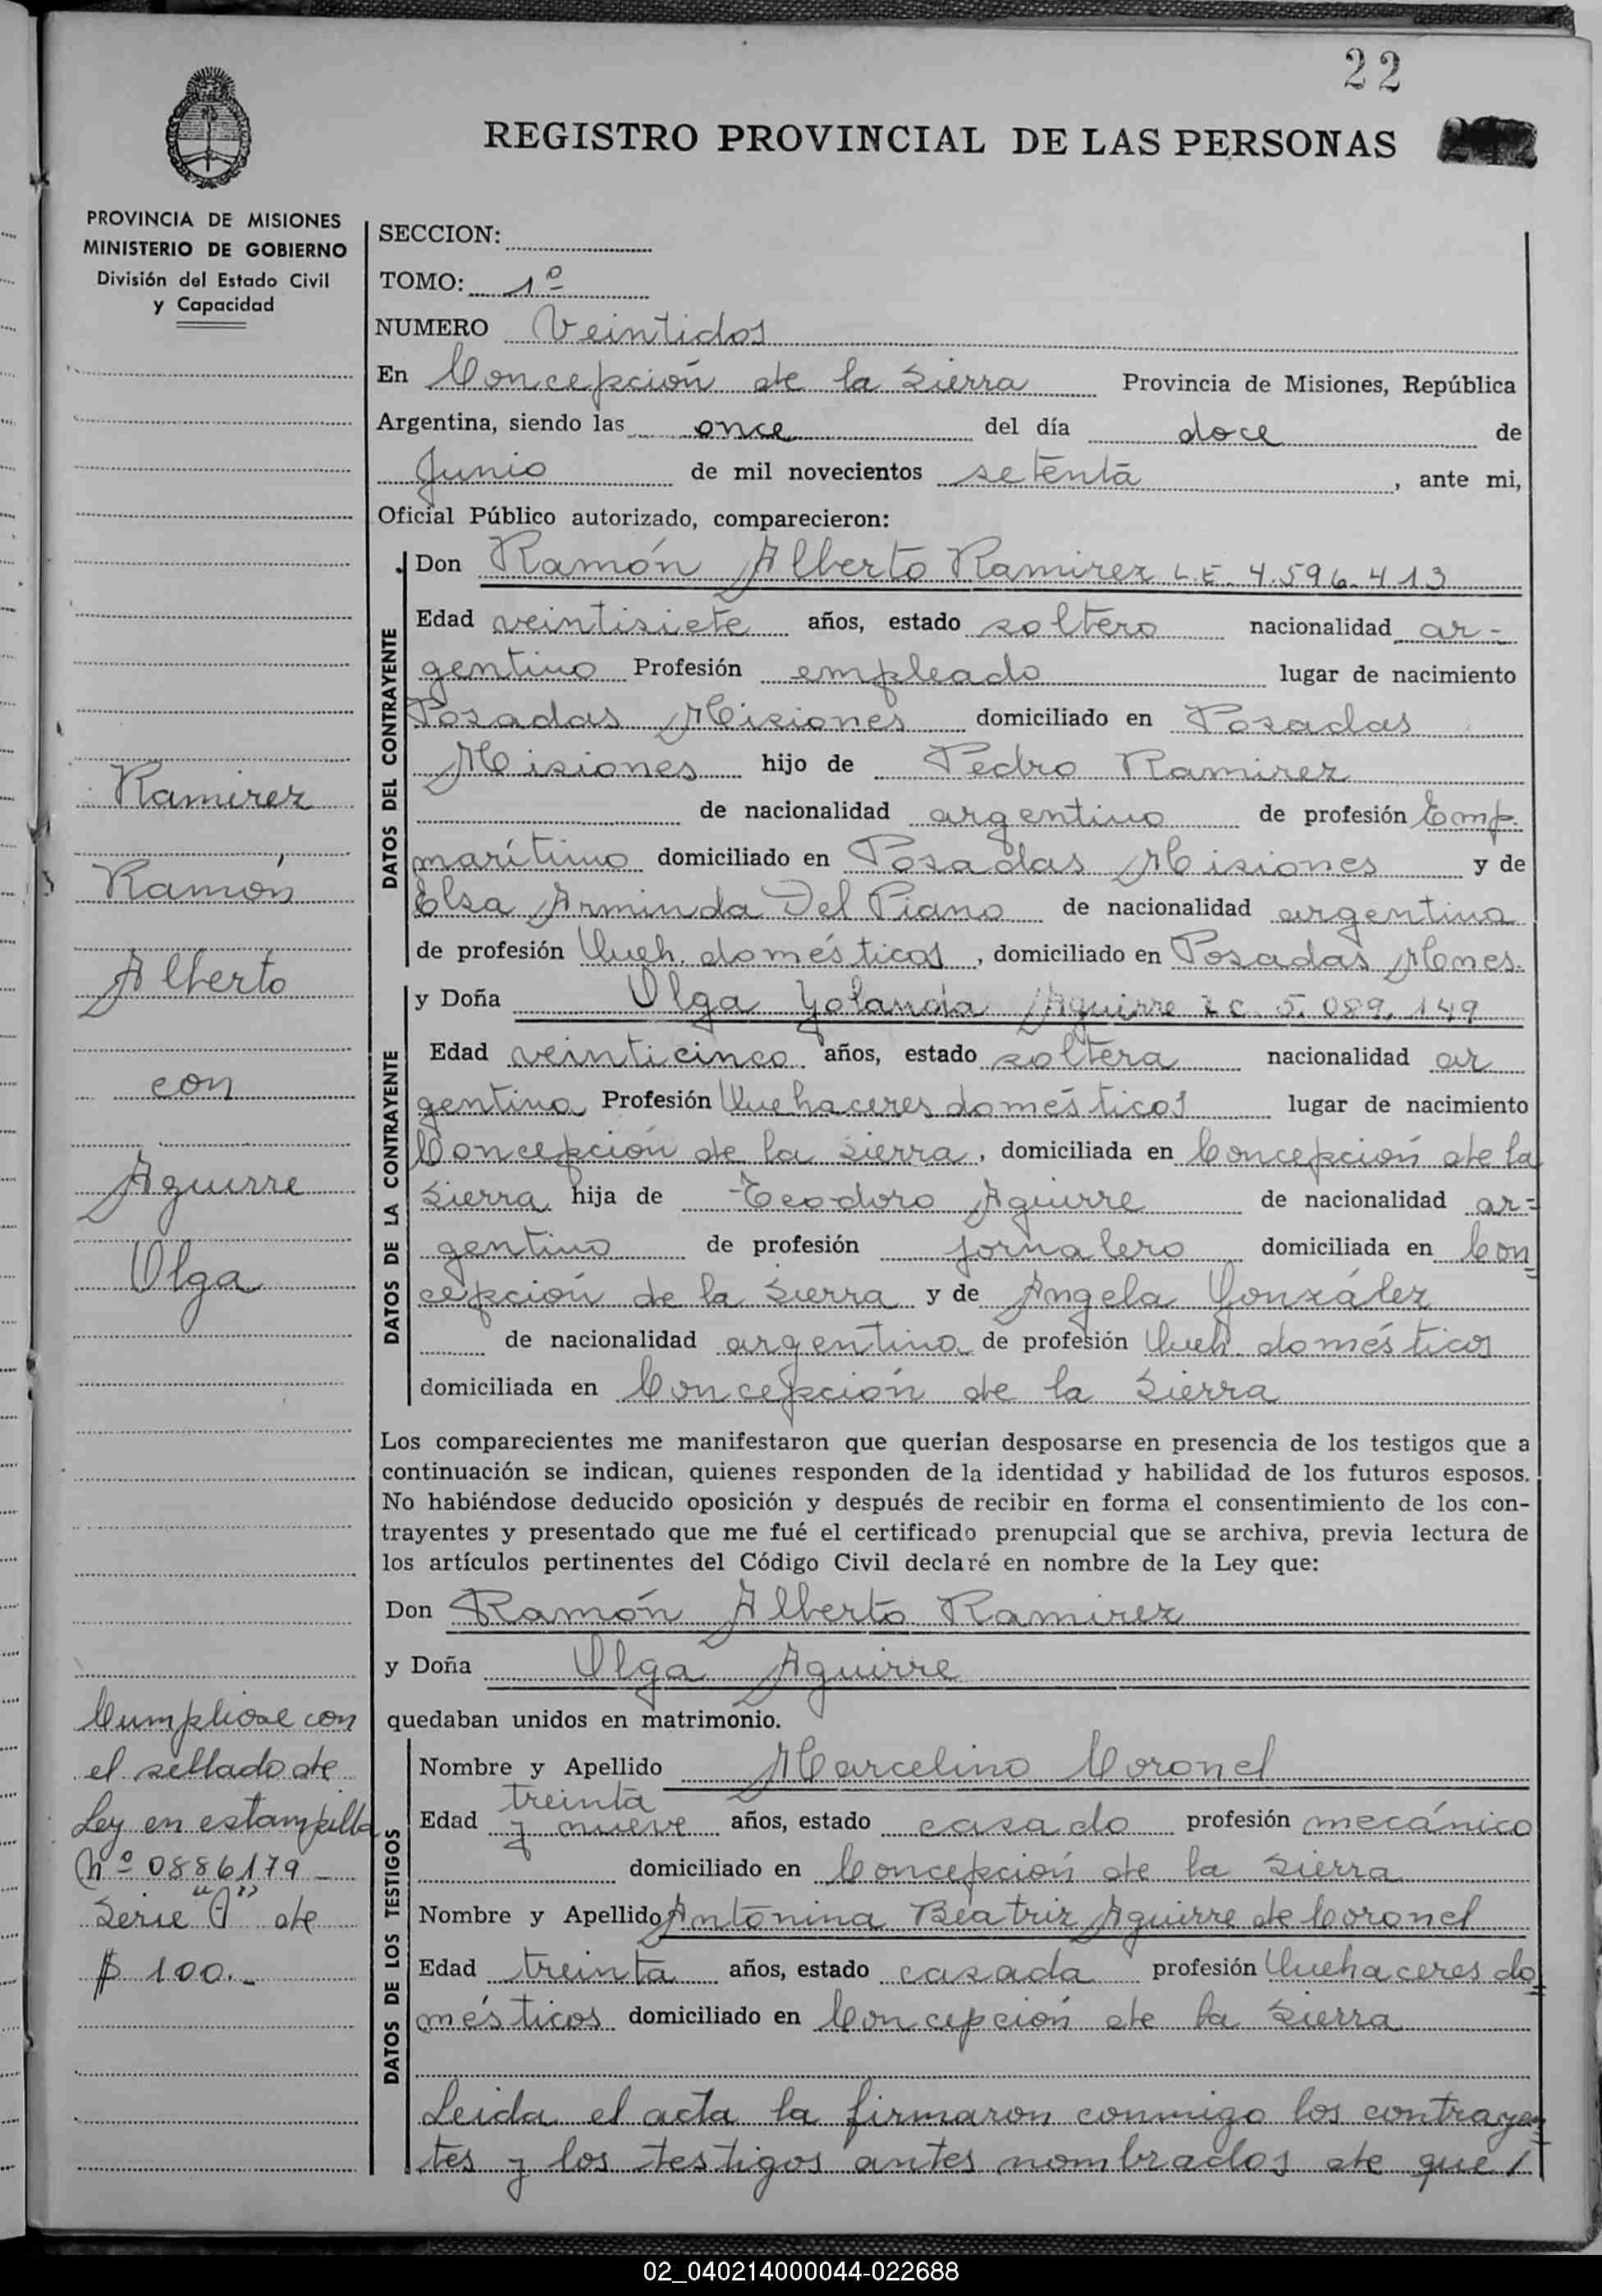 22
REGISTRO PROVINCIAL DE LAS PERSONAS
PROVINCIA DE MISIONES
MINISTERIO DE GOBIERNO
División del Estado Civil
y Capacidad
Ramirez
Ramón
Alberto
con
Aguirre
Olga
Cumpliose con
el sellado de
Ley en estampilla
Nº 0886179 -
Serie "A" de
$ 100.-
SECCION:
TOMO: 1º
NUMERO Veintidos
En Concepción de la Sierra Provincia de Misiones, República
Argentina, siendo las once del día doce de
Junio de mil novecientos setenta, ante mi,
Oficial Público autorizado, comparecieron:
DATOS DEL CONTRAYENTE
Don Ramón Alberto Ramirez L.E. 4.596.413
Edad veintisiete años, estado soltero nacionalidad ar-
gentino Profesión empleado lugar de nacimiento
Posadas Misiones domiciliado en Posadas
Misiones hijo de Pedro Ramirez
de nacionalidad argentino de profesión Emp.
marítimo domiciliado en Posadas Misiones y de
Elsa Arminda Del Piano de nacionalidad argentina
de profesión Queh. domésticos, domiciliado en Posadas Mones.
DATOS DE LA CONTRAYENTE
y Doña Olga Yolanda Aguirre L C. 5. 089. 149
Edad veinticinco años, estado soltera nacionalidad ar
gentina Profesión Quehaceres domésticos lugar de nacimiento
Concepción de la Sierra, domiciliada en Concepción de la
Sierra hija de Teodoro Aguirre de nacionalidad ar=
gentino de profesión jornalero domiciliada en Con=
cepción de la Sierra y de Angela González
de nacionalidad argentina de profesión Queh. domésticos
domiciliada en Concepción de la Sierra
Los comparecientes me manifestaron que querían desposarse en presencia de los testigos que a
continuación se indican, quienes responden de la identidad y habilidad de los futuros esposos.
No habiéndose deducido oposición y después de recibir en forma el consentimiento de los con-
trayentes y presentado que me fué el certificado prenupcial que se archiva, previa lectura de
los artículos pertinentes del Código Civil declaré en nombre de la Ley que:
Don Ramón Alberto Ramirez
y Doña Olga Aguirre
quedaban unidos en matrimonio.
DATOS DE LOS TESTIGOS
Nombre y Apellido Marcelino Coronel
treinta
Edad y nueve años, estado casado profesión mecánico
domiciliado en Concepción de la Sierra
Nombre y Apellido Antonina Beatriz Aguirre de Coronel
Edad treinta años, estado casada profesión Quehaceres do=
mésticos domiciliado en Concepción de la Sierra
Leida el acta la firmaron conmigo los contrayen=
tes y los testigos antes nombrados de que/
02_040214000044-022688